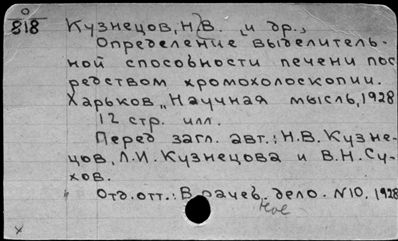 0
818
Кузнецов, Н.В. и др.,
Определение выделитель-
ной способности печени пос
редством хромохолоскопии.
Харьков „Научная мысль, 1928
12 стр. илл.
Перед загл. авт.: Н.В. Кузне-
цов, Л.И. Кузнецова и В.Н. Су-
хов.
Отд. отт.: Врачеб. дело. N10, 1928
x